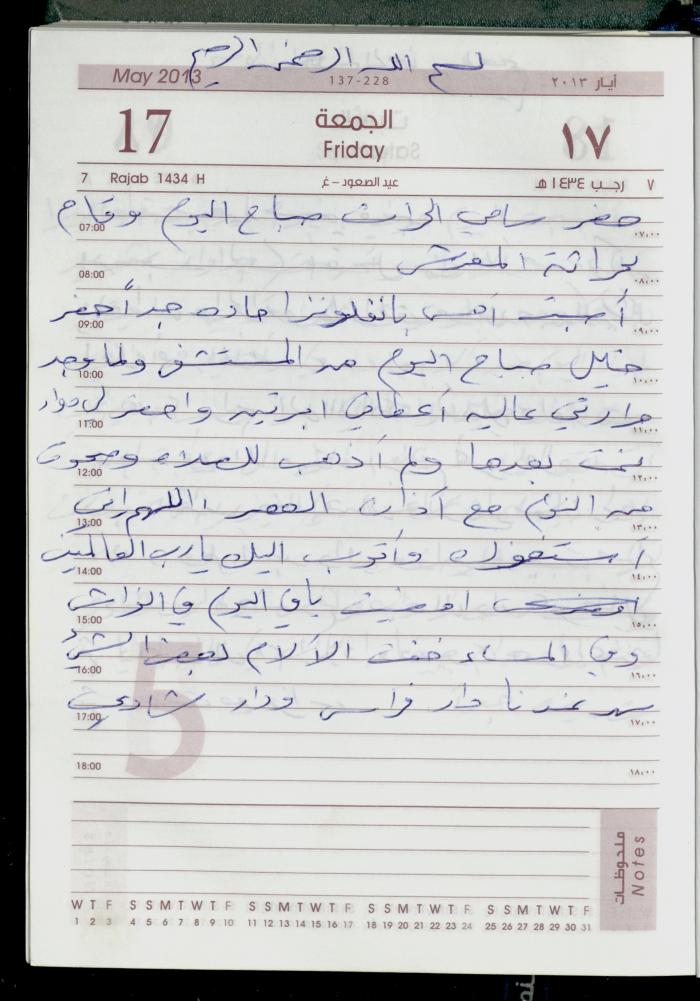 بسم الله الرحمن الرحيم
May 2013 137-228 أيار ٢٠١٣
17 الجمعة ١٧
Friday
7 Rajab 1434 H عيد الصعود - غ ٧ رجب ١٤٣٤ هـ
حضر سامي الحراث صباح اليوم وقام
07:00 ٠٧,٠٠
بحراثة المفرش
08:00 ٠٨,٠٠
أصبت أمس بانفلونزا حاده جداً حضر
09:00 ٠٩,٠٠
خليل صباح اليوم من المستشفى ولما وجد
10:00 ١٠,٠٠
حرارتي عاليه أعطاني ابرتين واحضر لي دواء
11:00 ١١,٠٠
نمت بعدها ولم أذهب للصلاه وصحوت
12:00 ١٢,٠٠
من النوم مع آذان العصر ، اللهم إني
13:00 ١٣,٠٠
أستغفرك وأتوب اليك يا رب العالمين
14:00 ١٤,٠٠
امضيت باقي اليوم في الفراش
15:00 ١٥,٠٠
وفي المساء خفت الآلام بعض الشيء
16:00 ١٦,٠٠
سهر عندنا دار فراس ودار شادي
17:00 ١٧,٠٠
5
18:00 ١٨,٠٠
ملحوظات
Notes
W T F S S M T W T F S S M T W T F S S M T W T F S S M T W T F
1 2 3 4 5 6 7 8 9 10 11 12 13 14 15 16 17 18 19 20 21 22 23 24 25 26 27 28 29 30 31